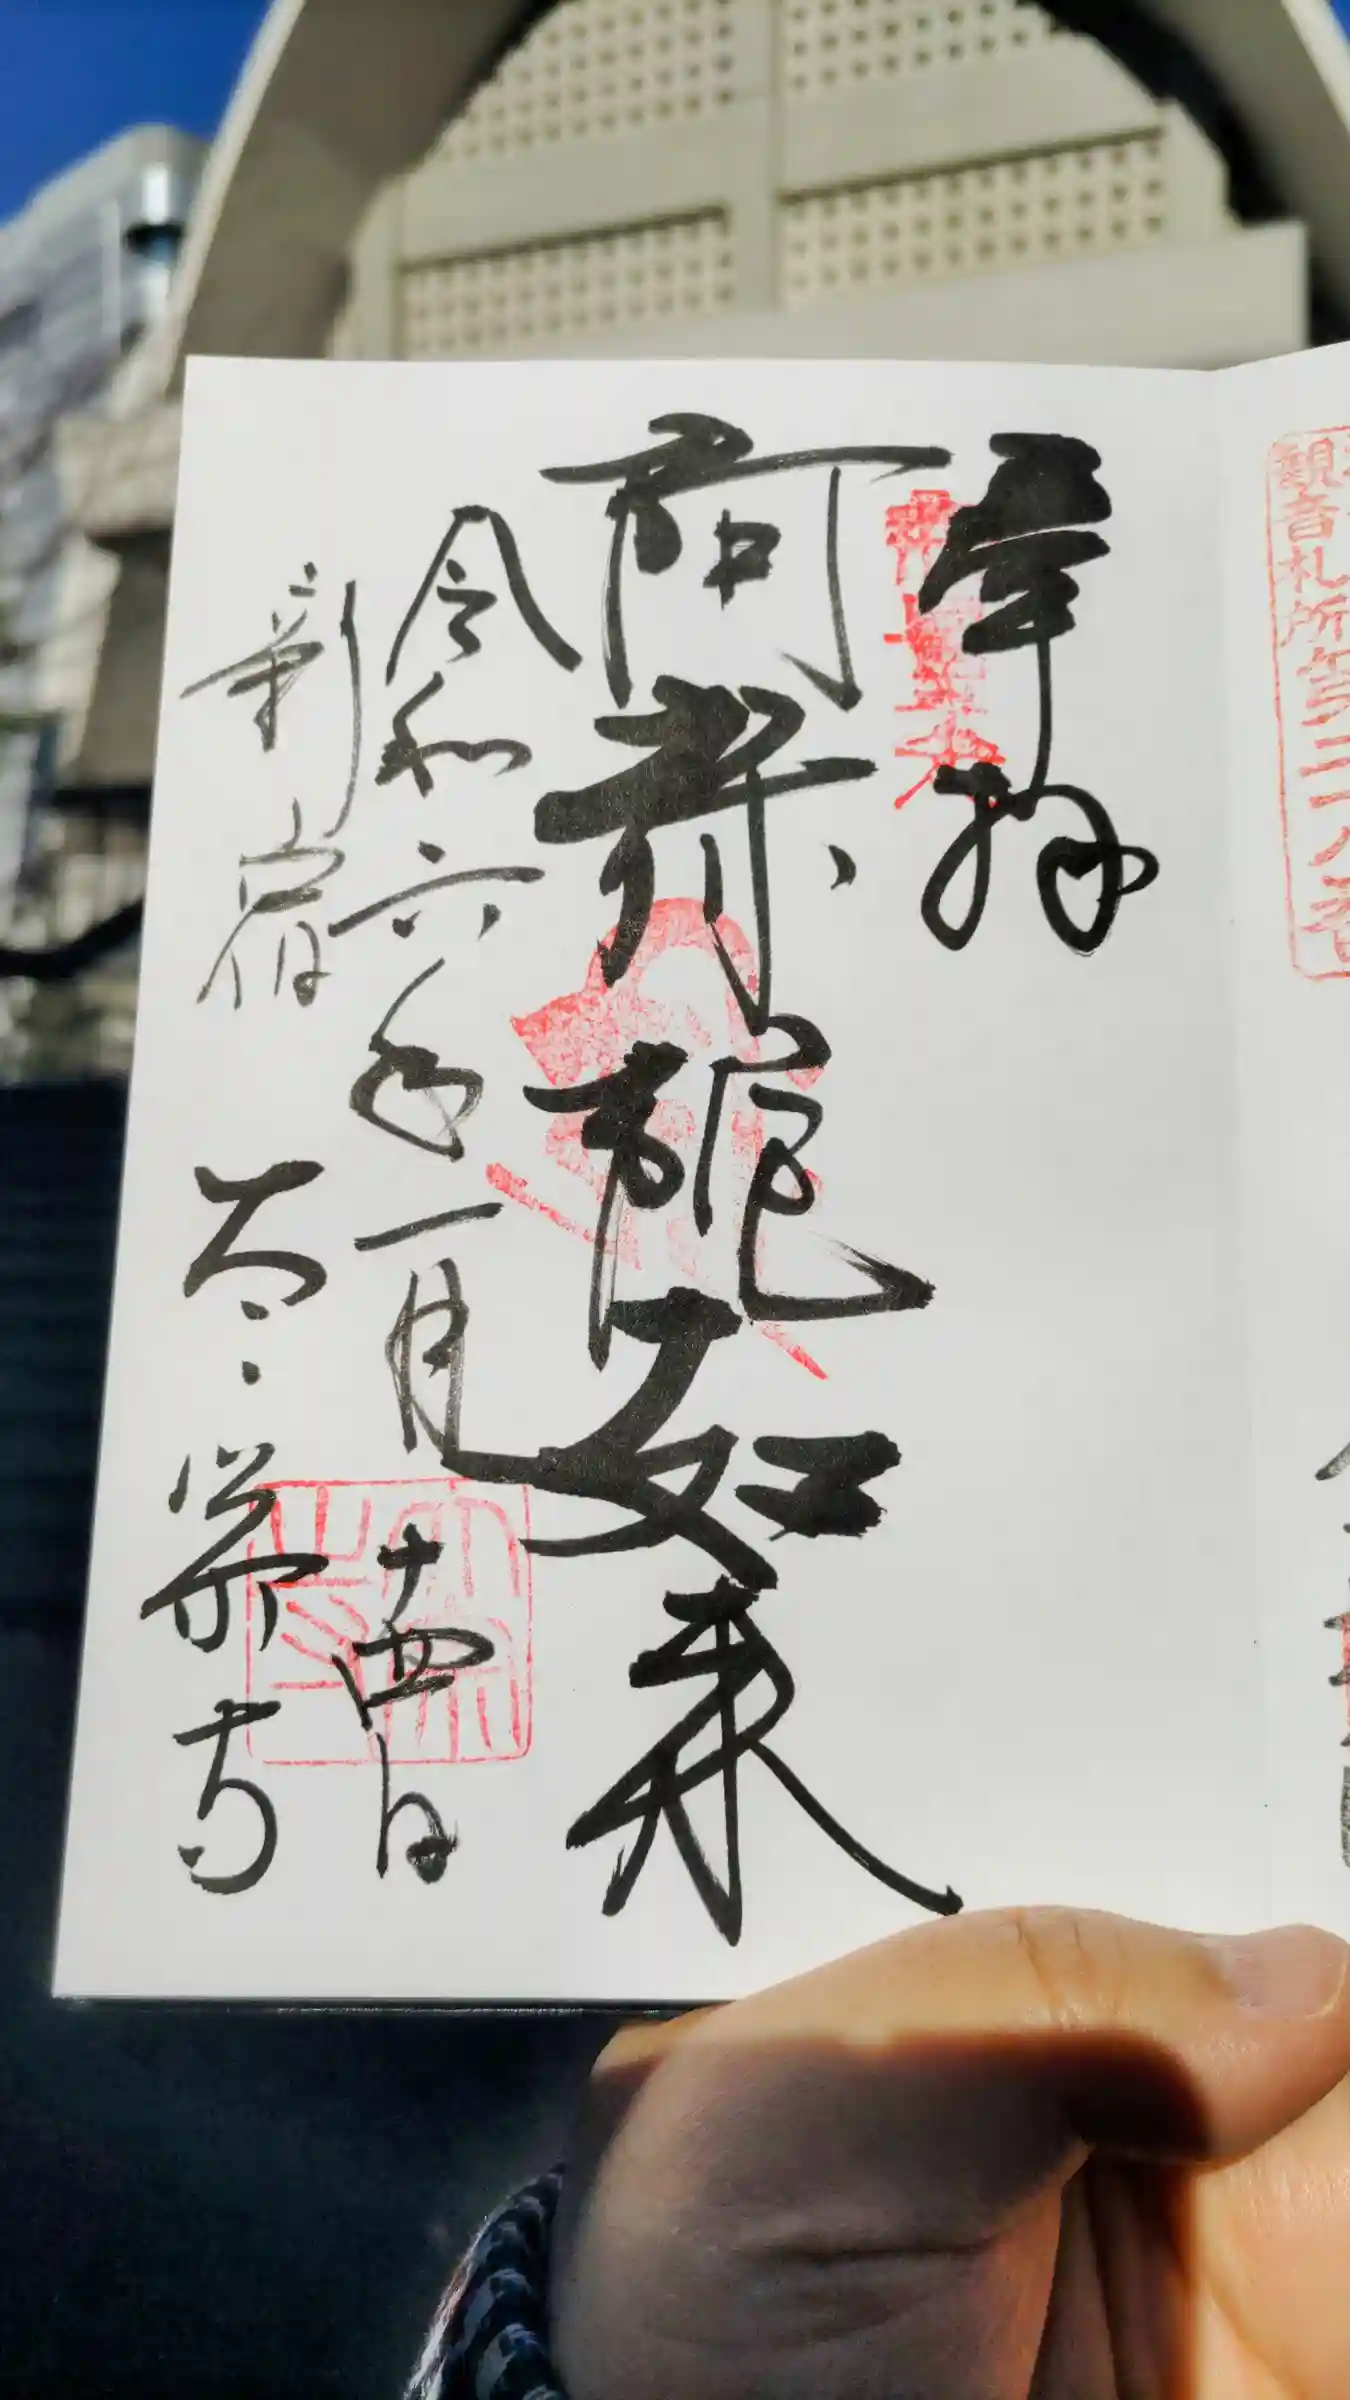 観音札所
奉拝
阿弥陀如来
令和六年一月十四日
新宿 太宗寺